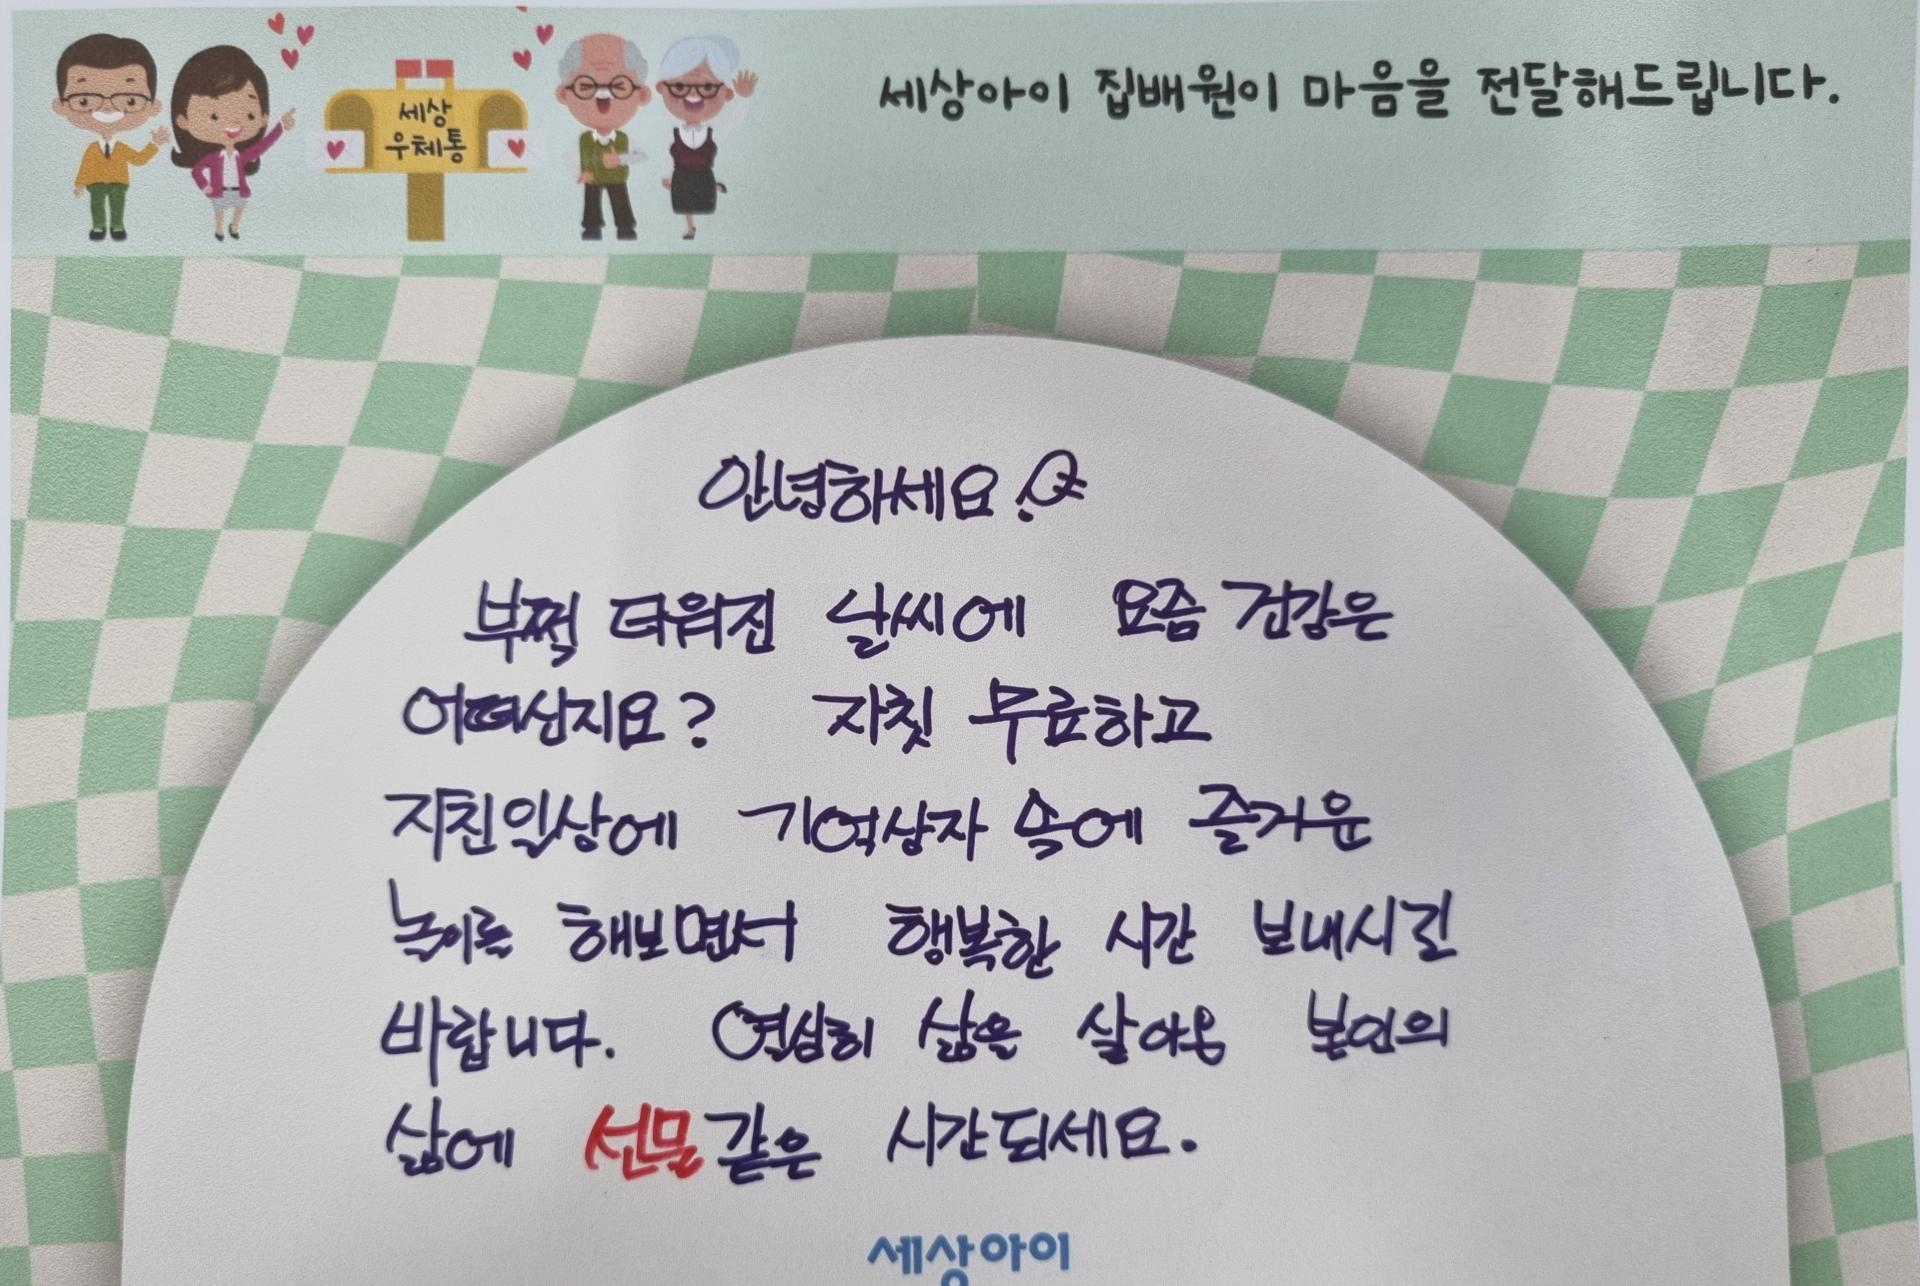 세상아이 집배원이 마음을 전달해드립니다.
세상
우체통
안녕하세요!
부쩍 더워진 날씨에 요즘 건강은
어떠신지요? 자칫 무료하고
지친일상에 기억상자 속에 즐거운
놀이를 해보면서 행복한 시간 보내시길
바랍니다. 열심히 삶을 살아온 본인의
삶에 선물같은 시간되세요.
세상아이